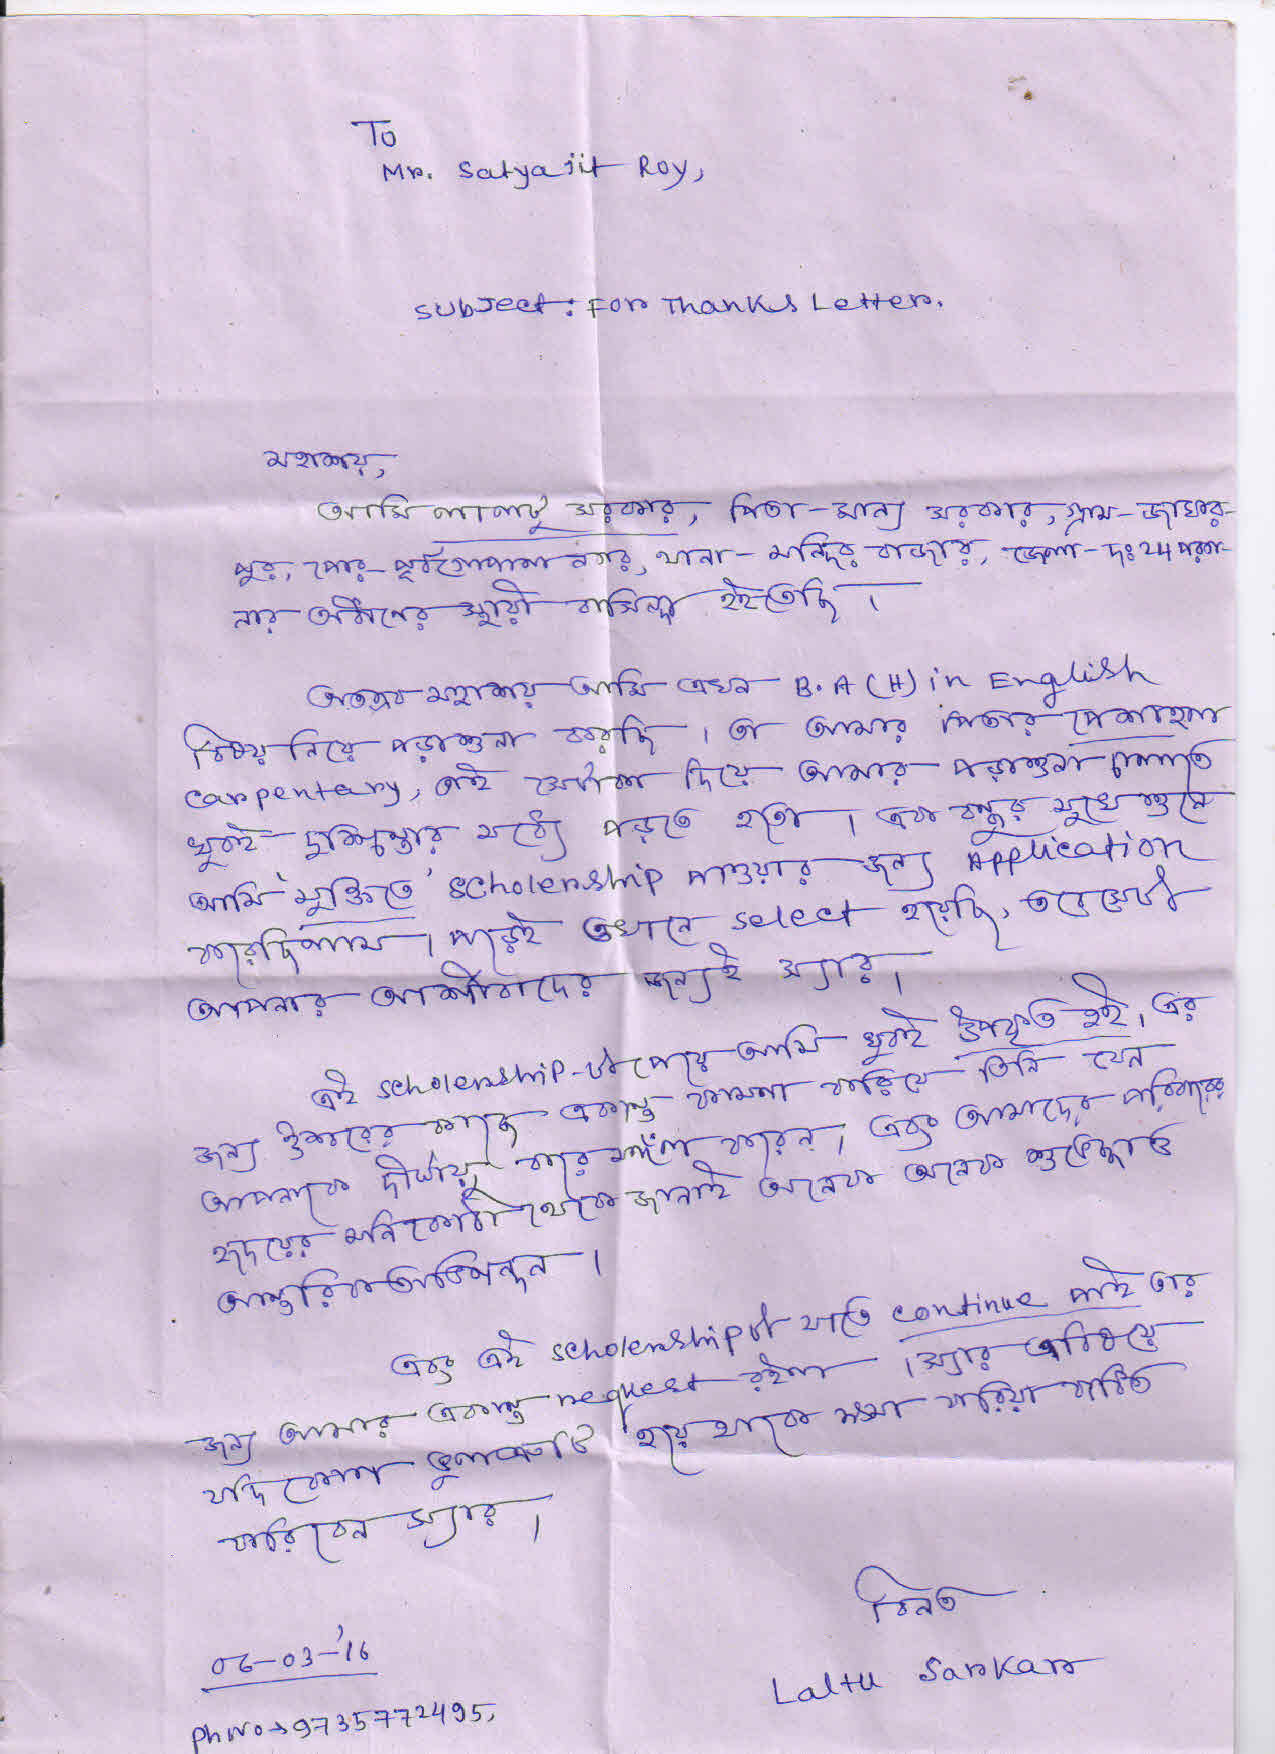 To
Mr. Satyajit Roy,
Subject: For Thanks Letter.
মহাশয়,
আমি লালটু সরকার, পিতা - মান্য সরকার, গ্রাম - জাফর-
পুর, পোঃ- পূর্বগোপাল নগর, থানা - মন্দির বাজার, জেলা - দঃ 24 পরগ-
নার অধীনের স্থায়ী বাসিন্দা হইতেছি।
অতএব মহাশয় আমি এখন B.A (H) in English
বিষয় নিয়ে পড়াশুনা করছি। তা আমার পিতার পেশাহল
carpentary, তাই সেটাকা দিয়ে আমার পড়াশুনা চালাতে
খুবই দুশ্চিন্তার মধ্যে পড়তে হতো। এক বন্ধুর মুখে শুনে
আমি 'মুক্তিতে' scholership পাওয়ার জন্য Application
করেছিলাম। পরেই ওখানে select হয়েছি, তবে সেটা
আপনার আশীর্বাদের জন্যই স্যার।
এই scholership-টা পেয়ে আমি খুবই উপকৃত হই। এর
জন্য ঈশ্বরের কাছে একান্ত কামনা করি যে তিনি যেন
আপনাকে দীর্ঘায়ু করে মঙ্গল করেন। এবং আমাদের পরিবারের
হৃদয়ের মনিকোঠা থেকে জানাই অনেক অনেক শুভেচ্ছা ও
আন্তরিক অভিনন্দন।
এবং এই scholership টা যাতে continue পাই তার
জন্য আমার একান্ত request রইল। স্যার এবিষয়ে
যদি কোন ভুলত্রুটি হয়ে থাকে ক্ষমা করিয়া বাধিত
করিবেন স্যার।
বিনীত
Laltu Sarkar
06-03-'16
Ph No → 9735772495,